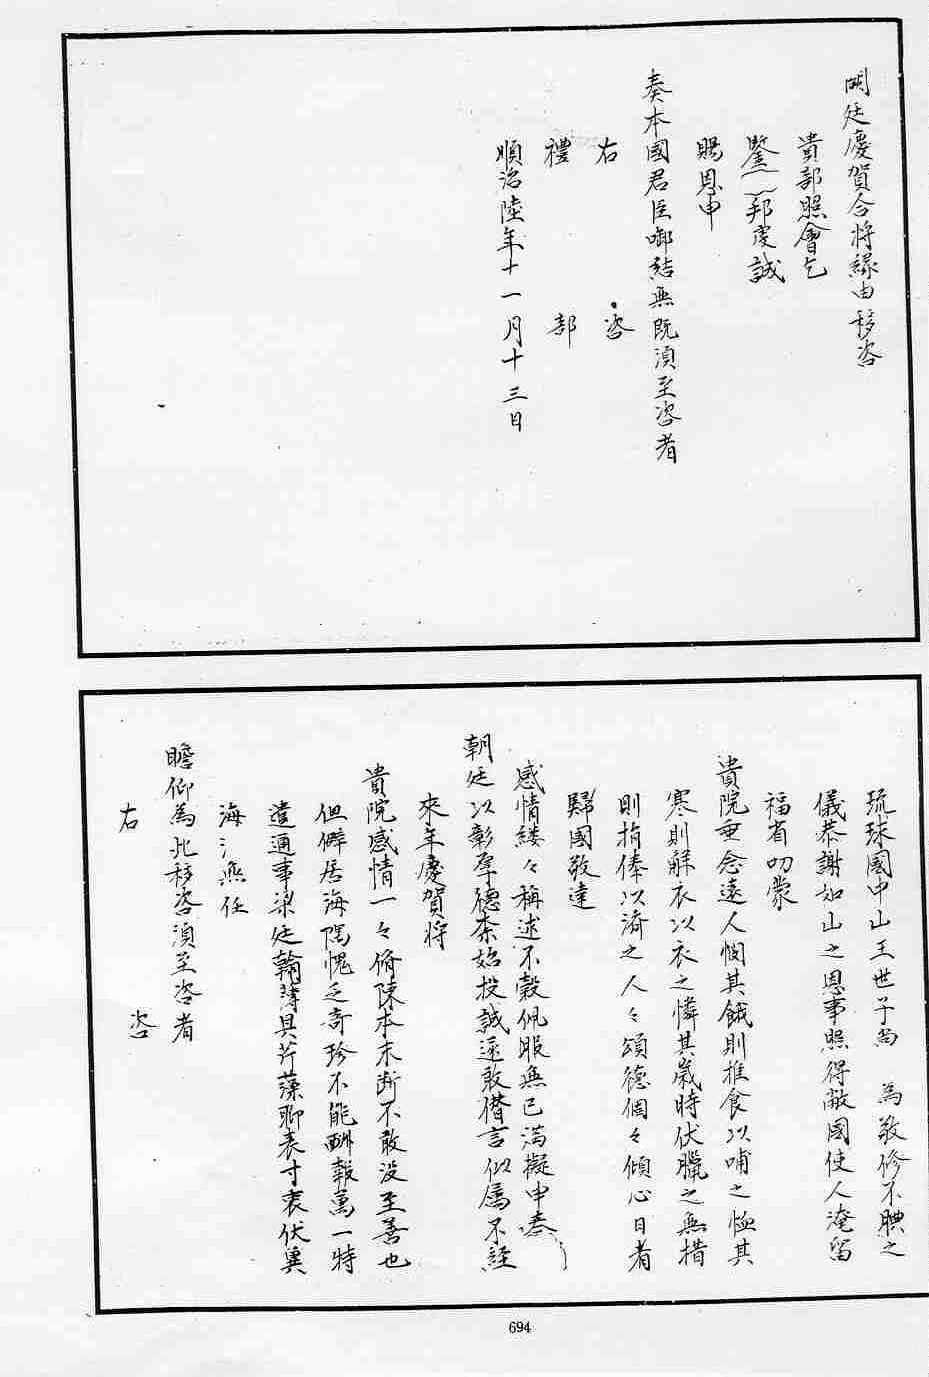 闕廷慶賀合将緣由移咨
貴部照會乞
鑒一邦虔誠
賜恩申
奏本國君臣啣結無既湏至咨者
右咨
禮部
順治陸年十一月十三日
琉球國中山王世子尚　為敬修不腆之
儀恭謝如山之恩事照得敝國使人淹留
福省叨蒙
貴院垂念遠人憫其餓則推食以哺之恤其
寒則解衣以衣之憐其歲時伏臘之無措
則捐俸以濟之人々頌德個々傾心日者
歸國敬達
感情縷々稱述不穀佩服無已滿擬申奏
朝廷以彰厚德柰始投誠遽敢僭言似属不經
來年慶賀将
貴院感情一々脩陳本末断不敢没至善也
但僻居海隅愧乏竒珍不能酬報萬一特
遣通事梁廷翰薄具芹藻聊表寸衷伏冀
海涵無任
瞻仰為此移咨湏至咨者
右咨
694